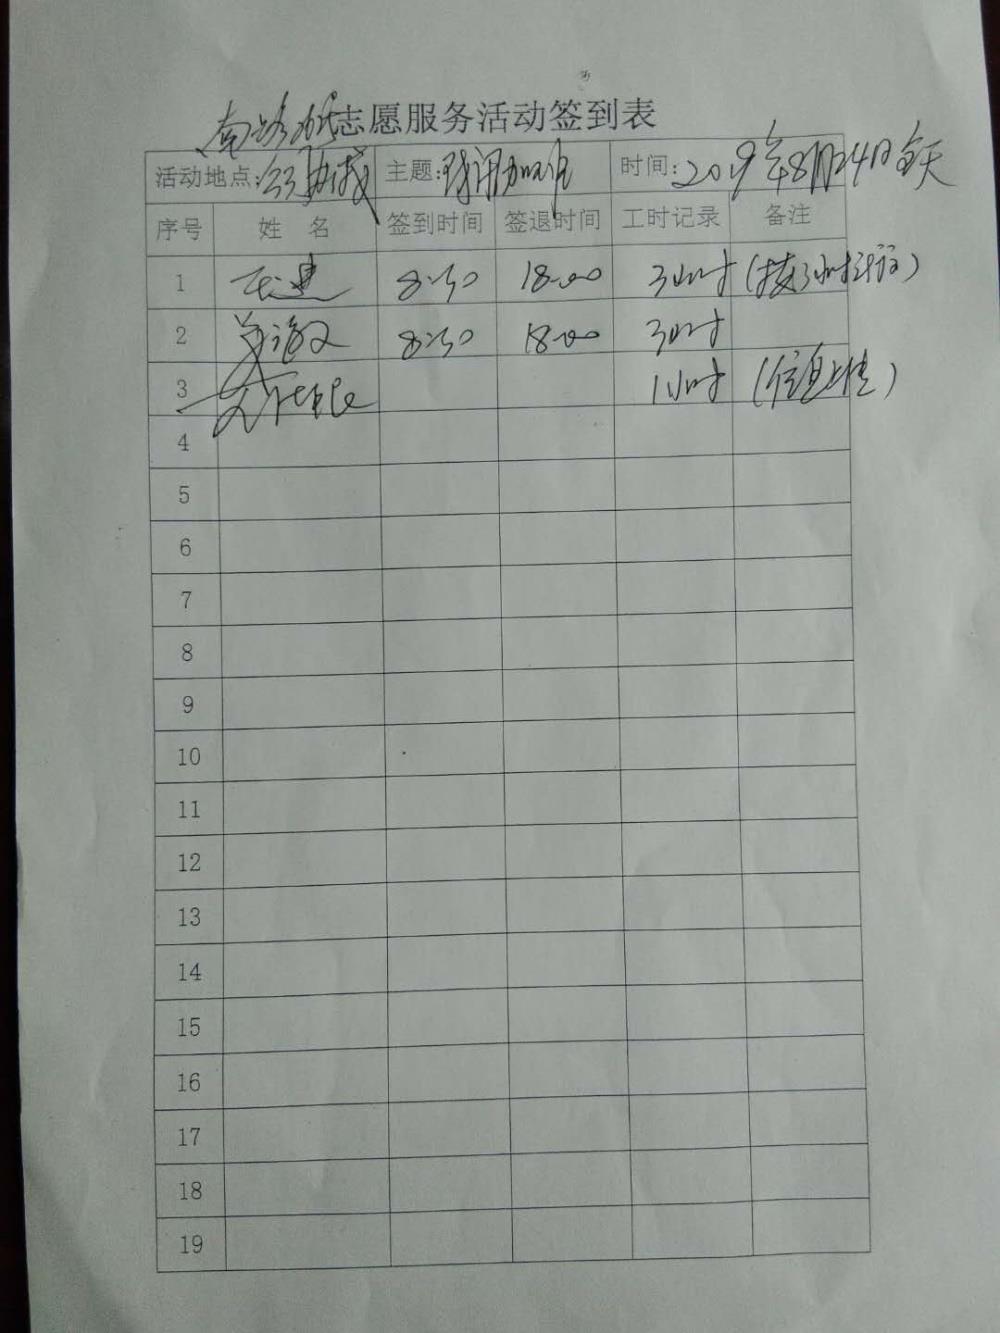 志愿服务活动签到表
活动地点: 主题: 时间:2019年8月24日全天
序号 姓 名 签到时间 签退时间 工时记录 备注
1 8:50 18:00 3小时 (按3小时计)
2 8:50 18:00 3小时
3 1小时 (信息上传)
4
5
6
7
8
9
10
11
12
13
14
15
16
17
18
19